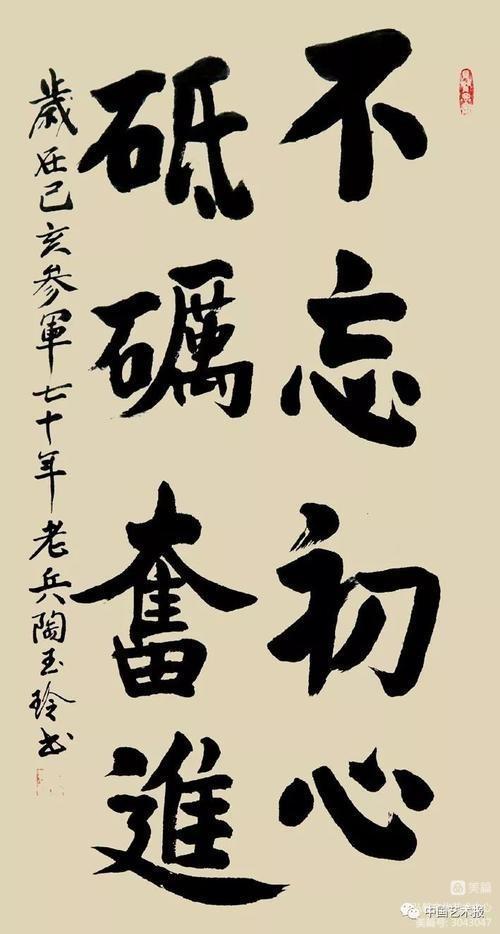 不忘初心
砥礪奮進
歲在己亥參軍七十年老兵陶玉玲书
美篇
中国艺术报
美篇号:3043047